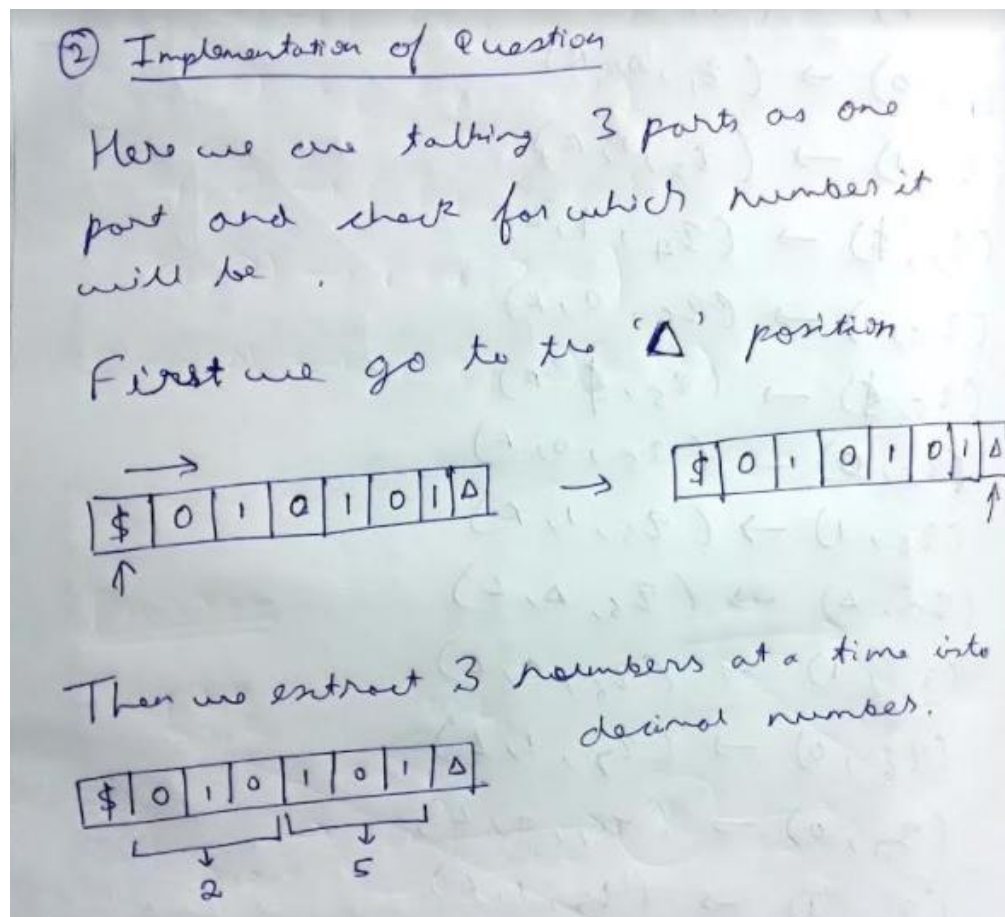 ② Implementation of Question
Here we are talking 3 parts as one
part and check for which number it
will be .
First we go to the 'Δ' position
→
$ 0 1 0 1 0 1 Δ → $ 0 1 0 1 0 1 Δ
↑ ↑
Then we extract 3 numbers at a time into
decimal number.
$ 0 1 0 1 0 1 Δ
2 5